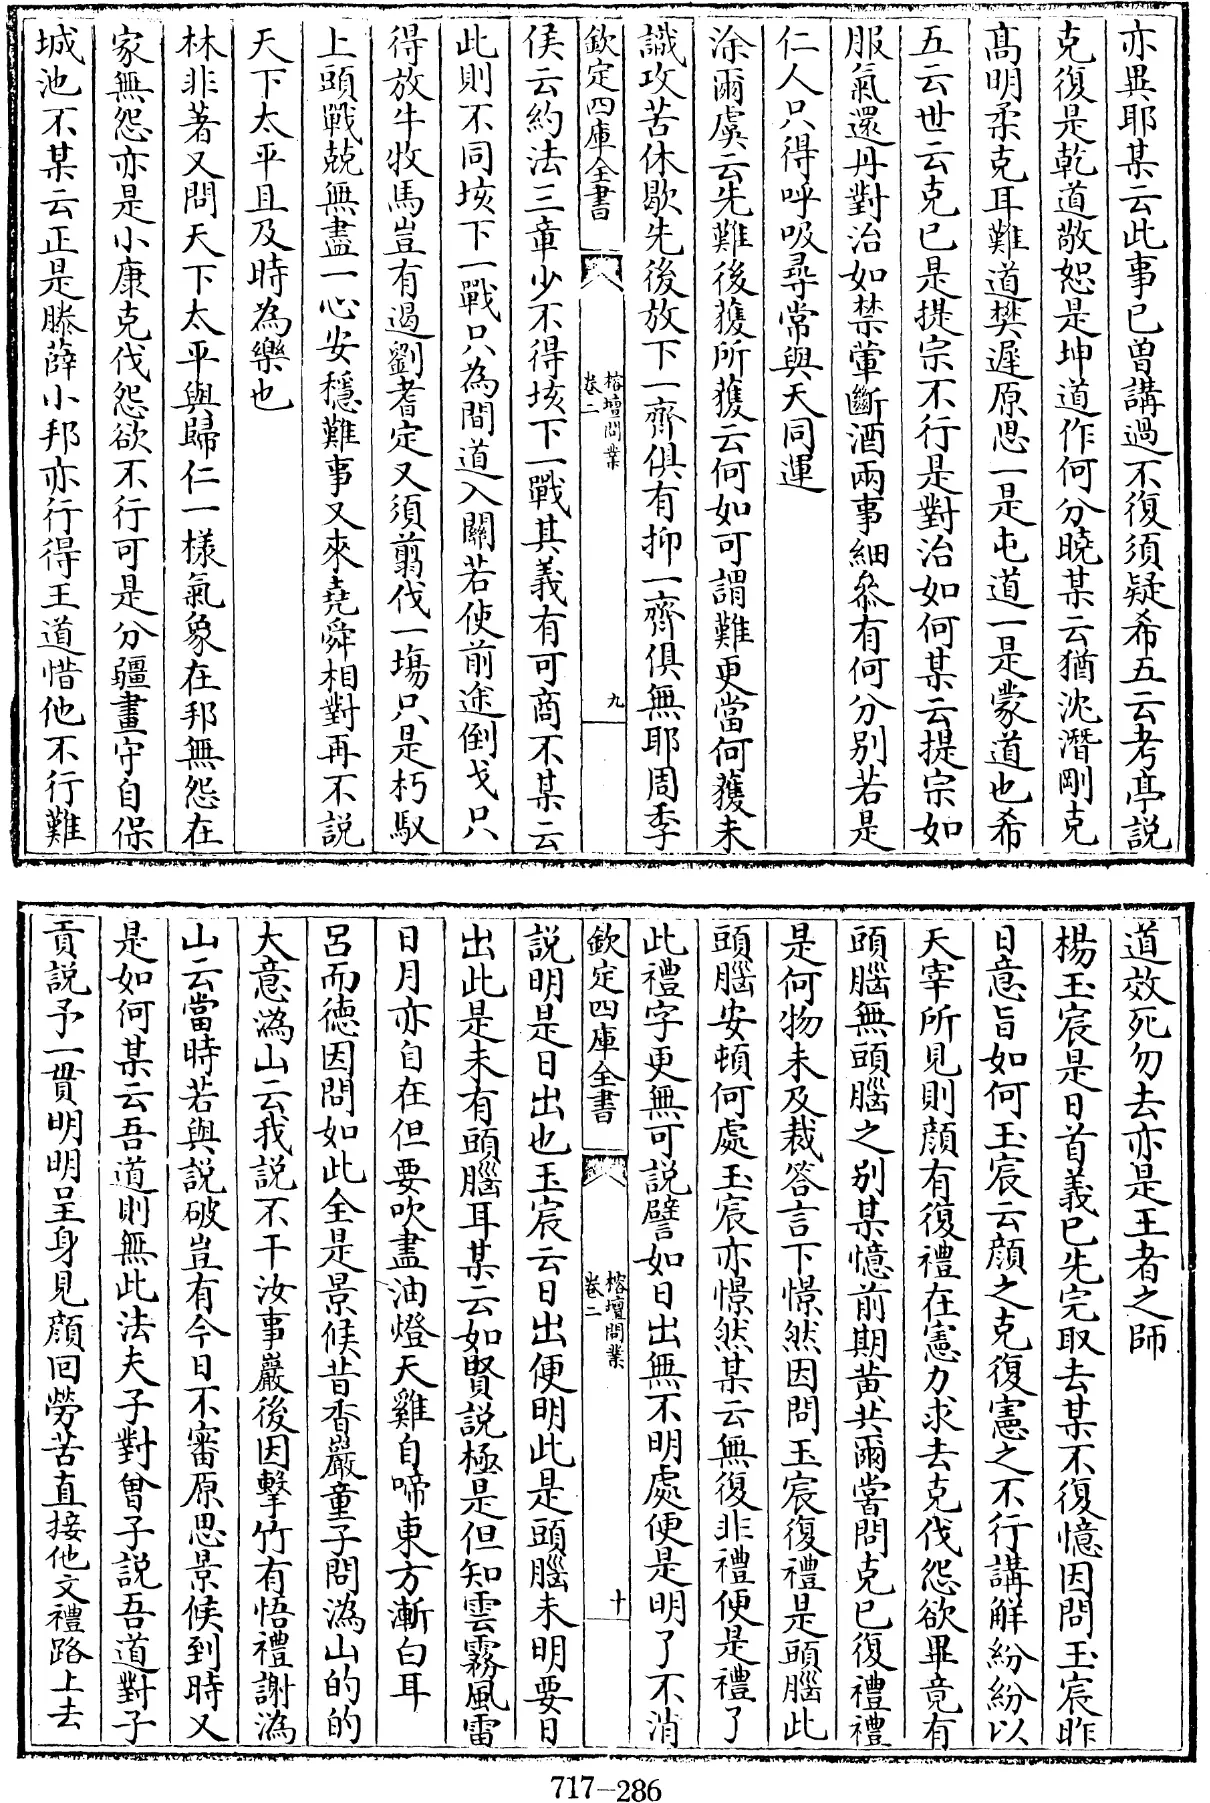 亦異耶某云此事已曾講過不復須疑希五云考亭說
克復是乾道敬恕是坤道作何分曉某云猶沈潛剛克
高明柔克耳難道樊遲原思一是屯道一是蒙道也希
五云世云克已是提宗不行是對治如何某云提宗如
服氣還丹對治如禁葷斷酒兩事細叅有何分別若是
仁人只得呼吸尋常與天同運
涂爾虞云先難後獲所獲云何如可謂難更當何獲未
識攻苦休歇先後放下一齊俱有抑一齊俱無耶周季
欽定四庫全書
榕壇問業
卷二
九
侯云約法三章少不得垓下一戰其義有可商不某云
此則不同垓下一戰只為間道入關若使前途倒戈只
得放牛牧馬豈有遏劉耆定又須翦伐一塲只是朽馭
上頭戰兢無盡一心安穩難事又來堯舜相對再不說
天下太平且及時為樂也
林非著又問天下太平與歸仁一樣氣象在邦無怨在
家無怨亦是小康克伐怨欲不行可是分疆畫守自保
城池不某云正是滕薛小邦亦行得王道惜他不行難
道效死勿去亦是王者之師
楊玉宸是日首義已先完取去某不復憶因問玉宸昨
日意旨如何玉宸云顔之克復憲之不行講解紛紛以
天宰所見則顔有復禮在憲力求去克伐怨欲畢竟有
頭腦無頭腦之别某憶前期黄共爾嘗問克已復禮禮
是何物未及裁答言下憬然因問玉宸復禮是頭腦此
頭腦安頓何處玉宸亦憬然某云無復非禮便是禮了
此禮字更無可說譬如日出無不明處便是明了不消
欽定四庫全書
榕壇問業
卷二
十
說明是日出也玉宸云日出便明此是頭腦未明要日
出此是未有頭腦耳某云如賢說極是但知雲霧風雷
日月亦自在但要吹盡油燈天雞自啼東方漸白耳
呂而德因問如此全是景候昔香嚴童子問溈山的的
大意溈山云我說不干汝事嚴後因擊竹有悟禮謝溈
山云當時若與說破豈有今日不審原思景候到時又
是如何某云吾道則無此法夫子對曾子說吾道對子
貢說予一貫明明呈身見顔回勞苦直接他文禮路上去
717-286